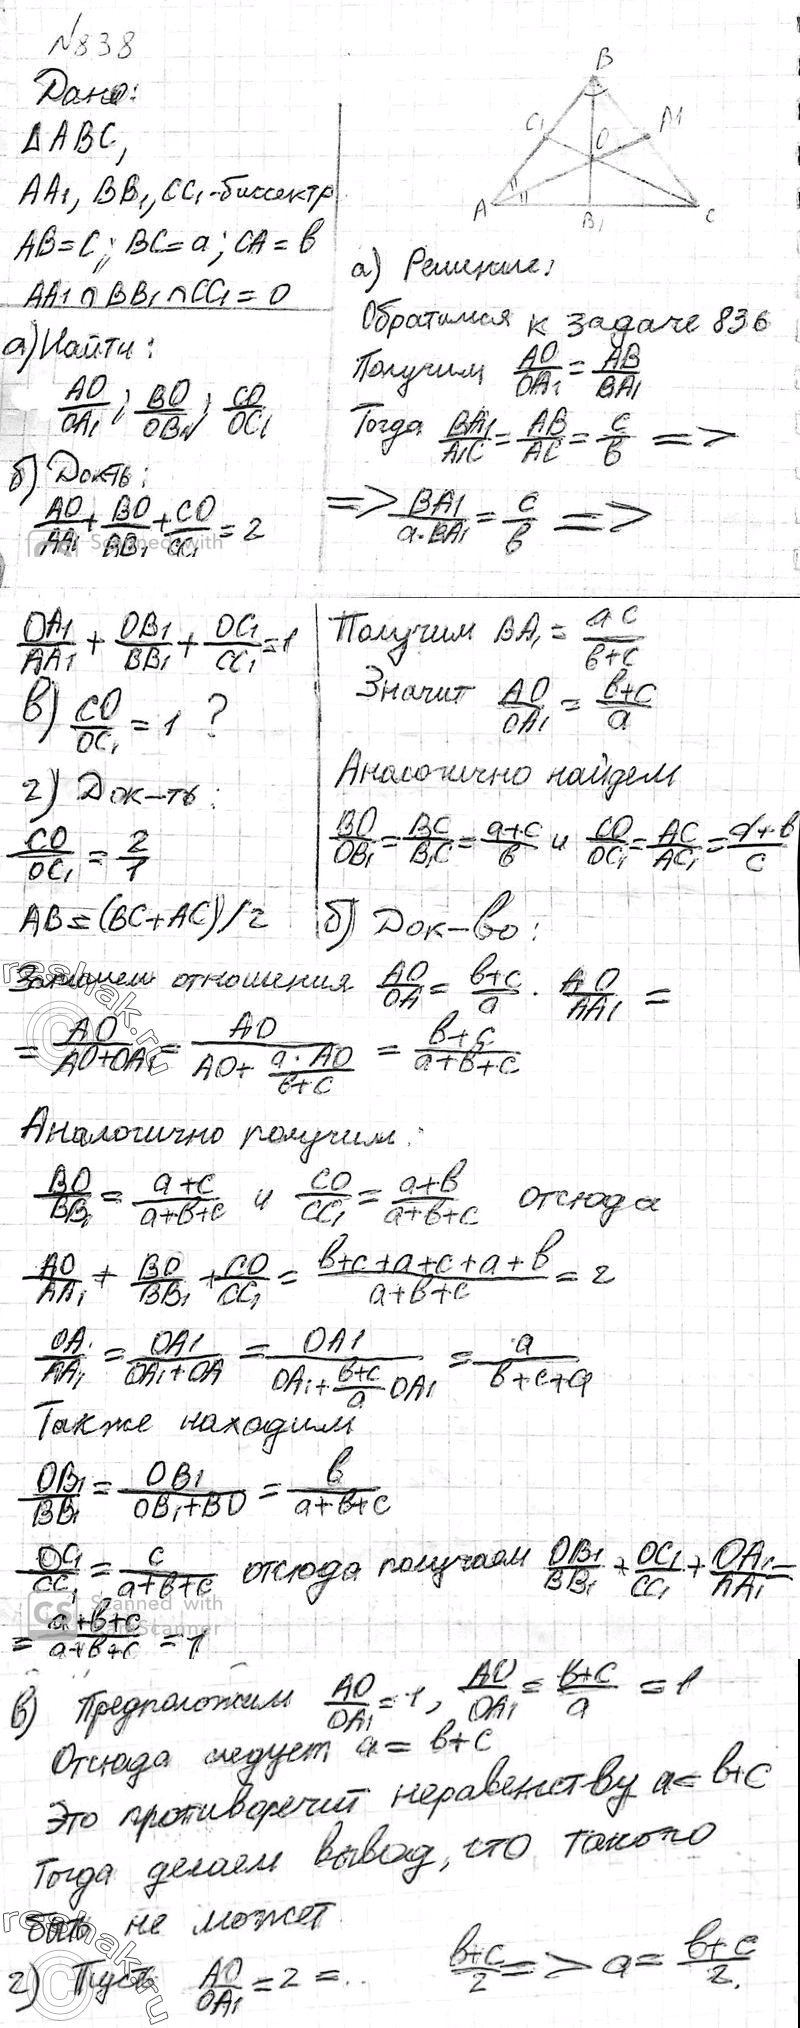 №838
Дано:
ΔABC,
AA1, BB1, CC1-биссектр
AB=C; BC=a; CA=в
AA1∩BB1∩CC1=O
а) Найти:
AO/OA1; BO/OB1; CO/OC1
б) Док-ть:
AO/AA1+BO/BB1+CO/CC1=2
Scanned with
B
C1
O
A1
A
B1
C
а) Решение:
Обратимся к задаче 836
Получим AO/OA1=AB/BA1
Тогда BA1/A1C=AB/AC=c/в =>
=> BA1/a-BA1=c/в =>
OA1/AA1+OB1/BB1+OC1/CC1=1
в) CO/OC1=1 ?
г) Док-ть:
CO/OC1=2/1
AB=(BC+AC)/2
Получим BA1=ac/в+c
Значит AO/OA1=в+c/a
Аналогично найдем
BO/OB1=BC/B1C=a+c/в и CO/OC1=AC/AC1=a+в/c
б) Док-во:
Запишем отношения AO/OA=в+c/a. AO/AA1=
=AO/AO+OA1=AO/AO+a·AO/в+c=в+c/a+в+c
Аналогично получим:
BO/BB1=a+c/a+в+c и CO/CC1=a+в/a+в+c отсюда
AO/AA1+BO/BB1+CO/CC1=в+c+a+c+a+в/a+в+c=2
OA1/AA1=OA1/OA1+OA=OA1/OA1+в+c/a OA1=a/в+c+a
Также находим
OB1/BB1=OB1/OB1+BO=в/a+в+c
OC1/CC1=c/a+в+c отсюда получаем OB1/BB1+OC1/CC1+OA1/AA1=
CS Scanned with
CamScanner
=a+в+c/a+в+c=1
в) Предположим AO/OA1=1, AO/OA1=в+c/a=1
Отсюда следует a=в+c
Это противоречит неравенству a<в+c
Тогда делаем вывод, что такого
быть не может.
г) Пусть AO/OA1=2=.. в+c/2=>a=в+c/2.
reshak.ru
reshak.ru